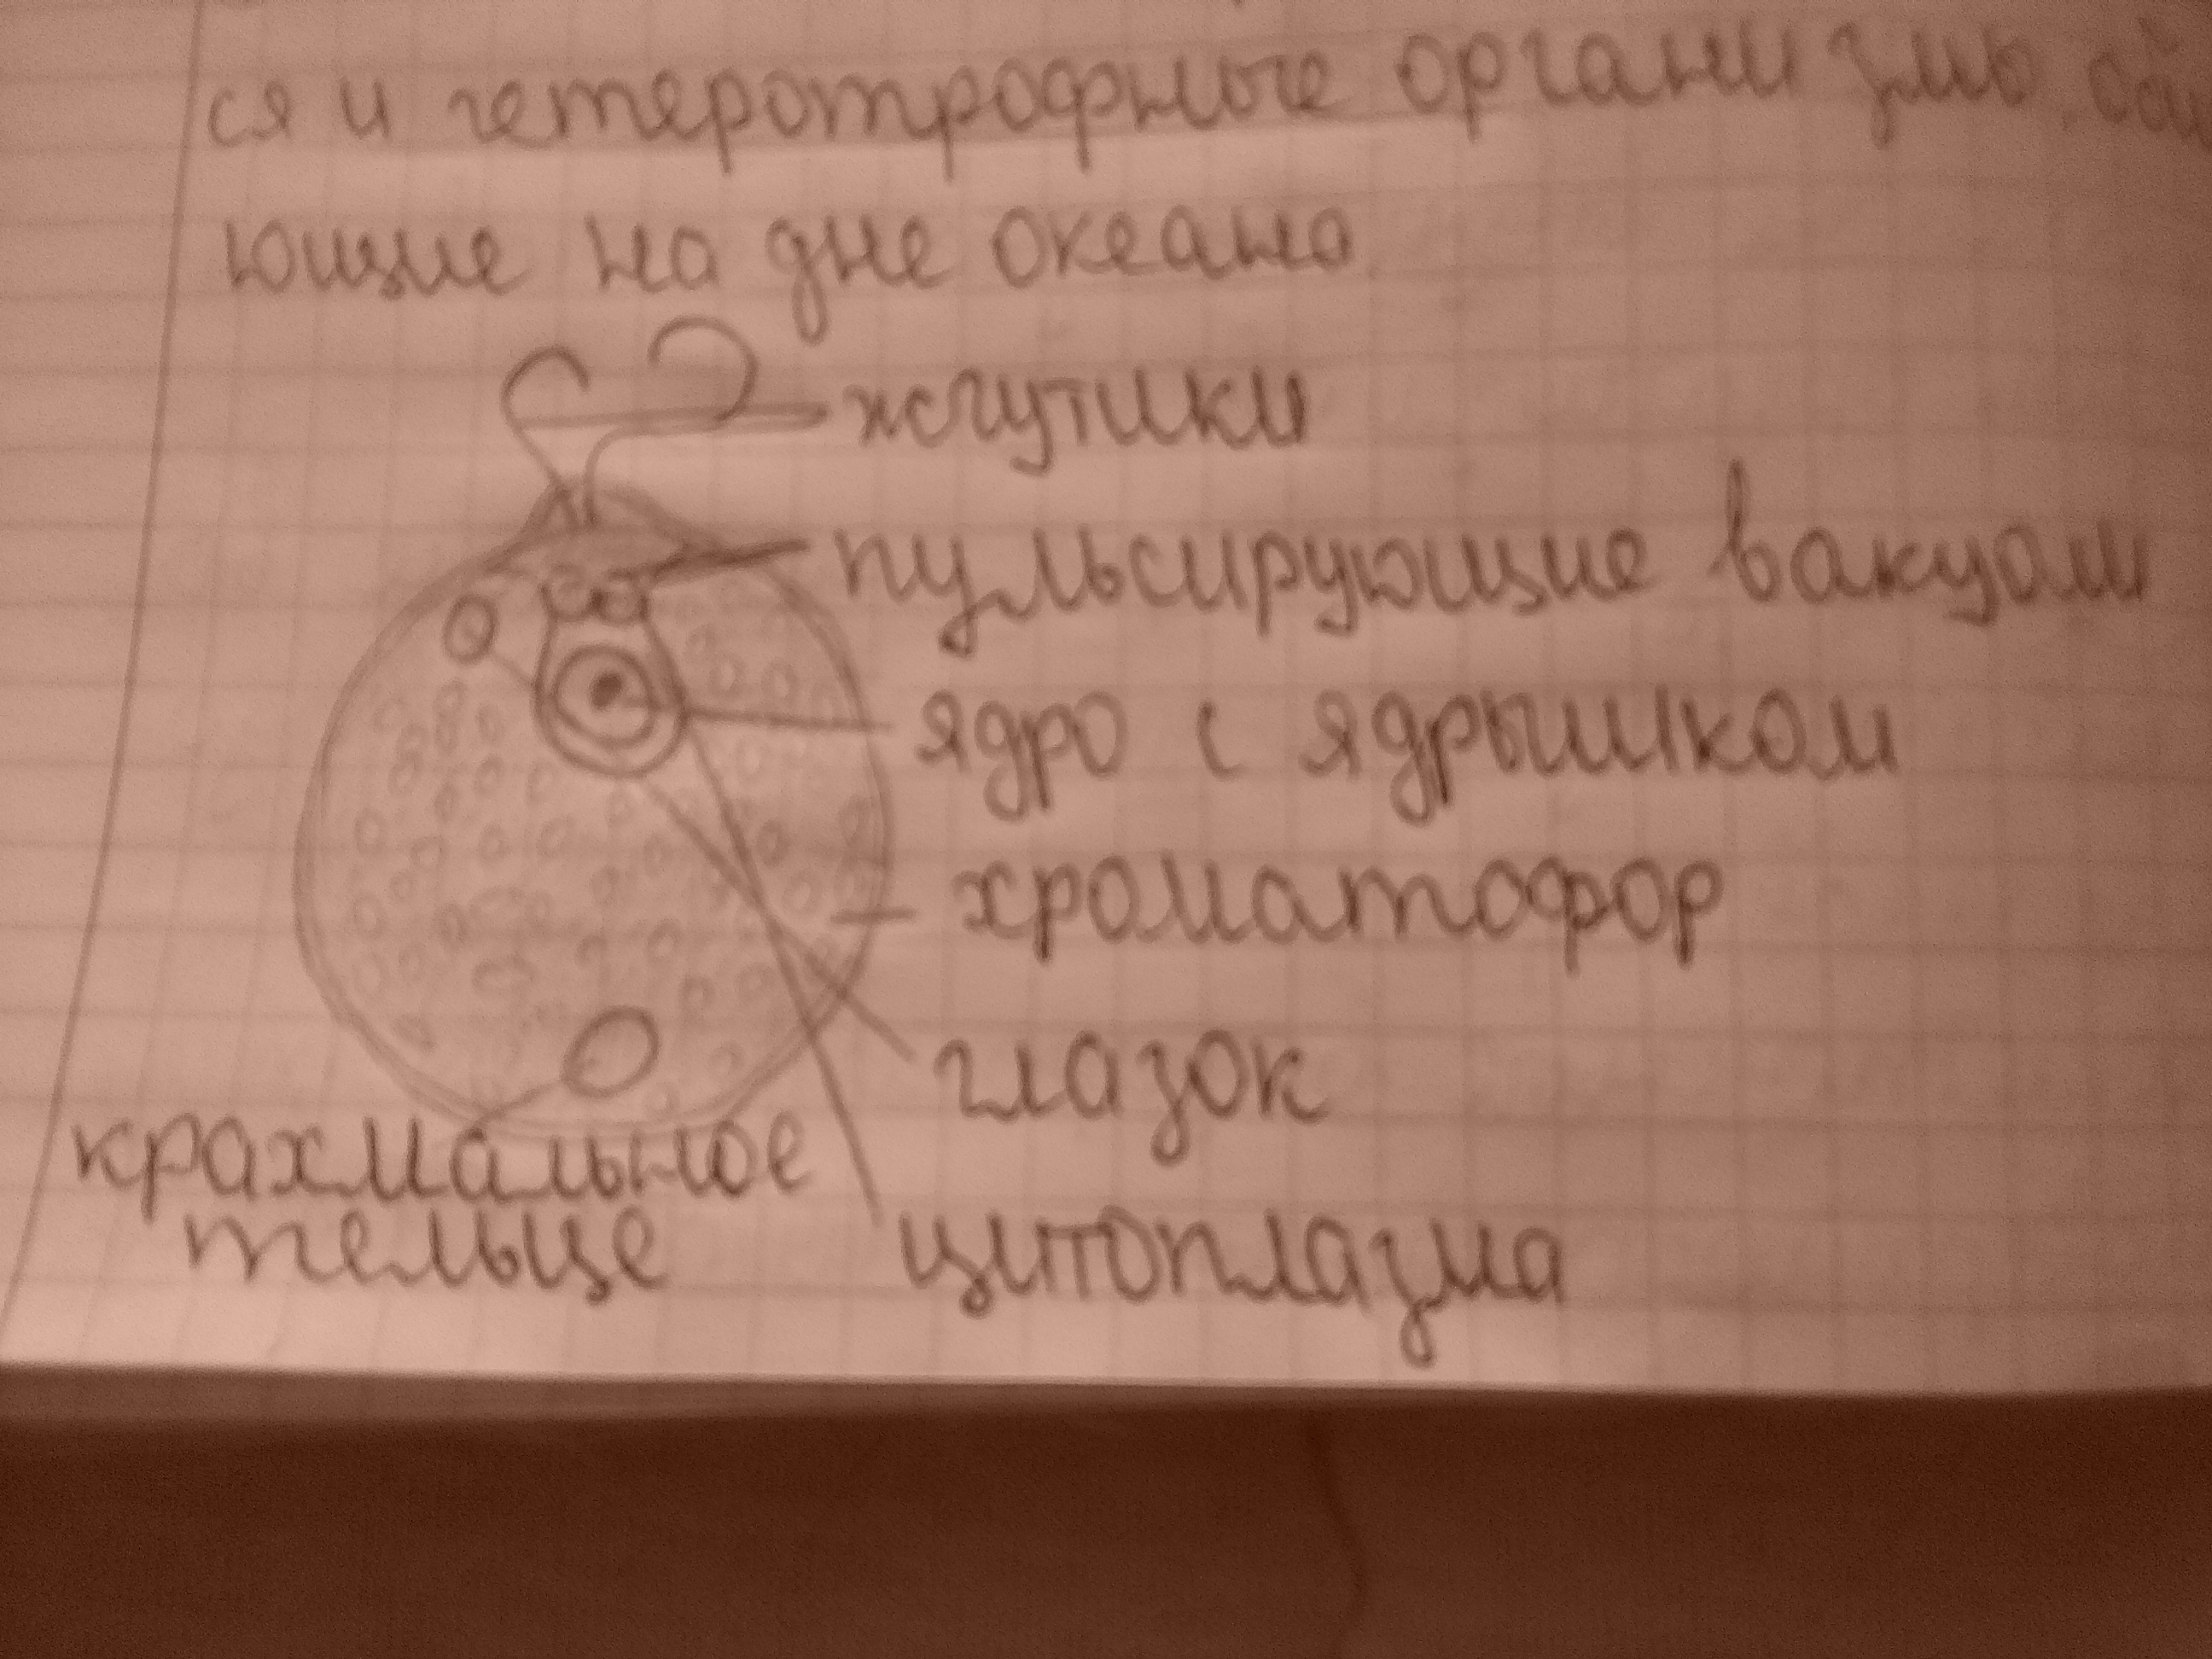 ся и гетеротрофные организмы
ющие на дне океана
жгутики
пульсирующие вакуоли
ядро с ядрышком
хроматофор
глазок
крахмальное
тельце
цитоплазма